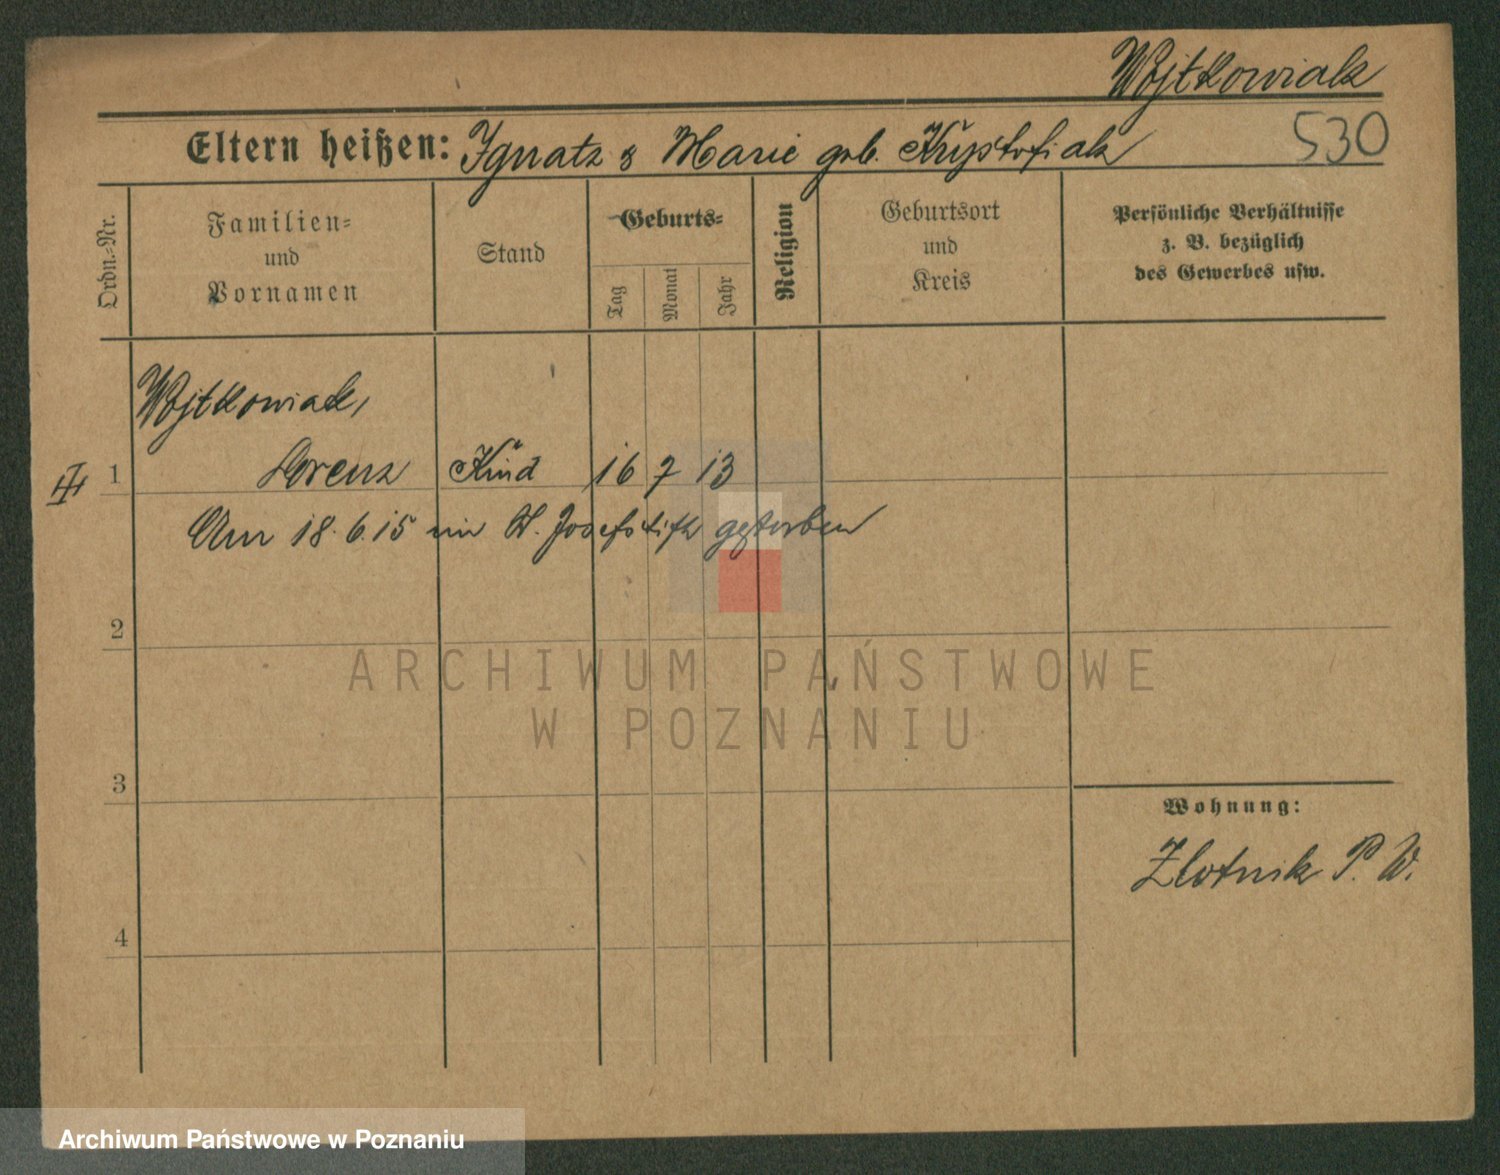 Wojtkowiak
Eltern heißen: Ignatz & Marie geb. Krystofiak
530
Ordn.=Nr.
Familien=
und
Vornamen
Stand
Geburts=
Tag
Monat
Jahr
Religion
Geburtsort
und
Kreis
Persönliche Verhältnisse
z. B. bezüglich
des Gewerbes usw.
Wojtkowiak,
III 1 Lorenz Kind 16 7 13
Am 18.6.15 im St. Josefstift gestorben
2
ARCHIWUM PAŃSTWOWE
W POZNANIU
3
Wohnung:
Zlotnik P. W.
4
Archiwum Państwowe w Poznaniu